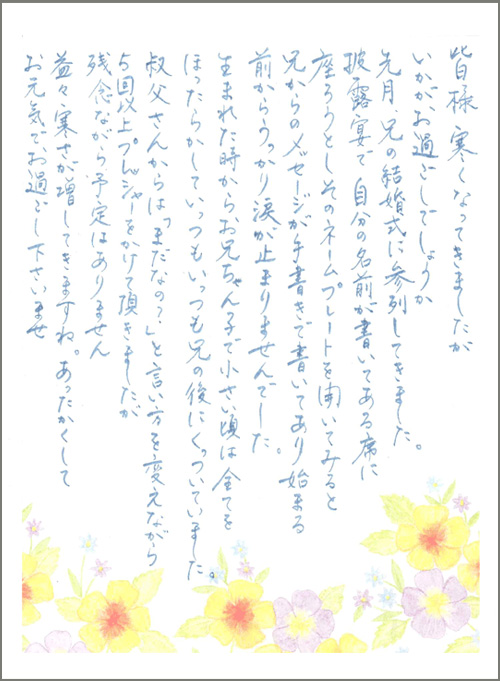 皆様、寒くなってきましたが
いかがお過ごしでしょうか
先月、兄の結婚式に参列してきました。
披露宴で自分の名前が書いてある席に
座ろうとしそのネームプレートを開いてみると
兄からのメッセージが手書きで書いてあり始まる
前からうっかり涙が止まりませんでした。
生まれた時からお兄ちゃん子で小さい頃は全てを
ほったらかしていっつもいっつも兄の後にくっついていました。
叔父さんからは「まだなの?」と言い方を変えながら
5回以上プレッシャーをかけて頂きましたが
残念ながら予定はありません
益々寒さが増してきますね。あったかくして
お元気でお過ごし下さいませ